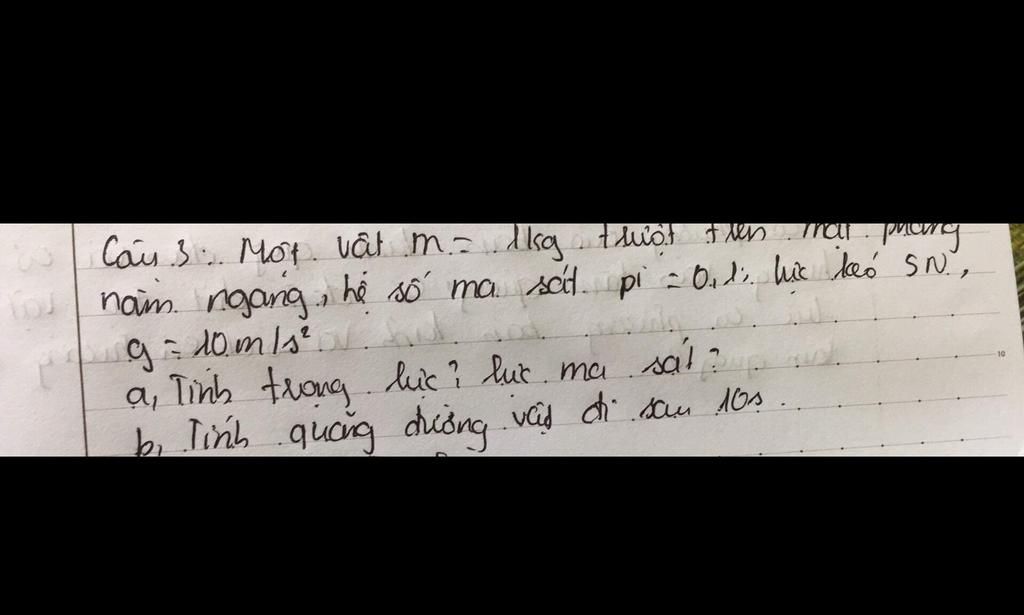 Câu 3: Một vật m = 1kg trượt trên mặt phẳng
nằm ngang, hệ số ma sát pi = 0,1. lực kéo 5N,
g = 10 m/s²
a, Tính trọng lực? lực ma sát?
b, Tính quãng đường vật đi sau 10s.
10